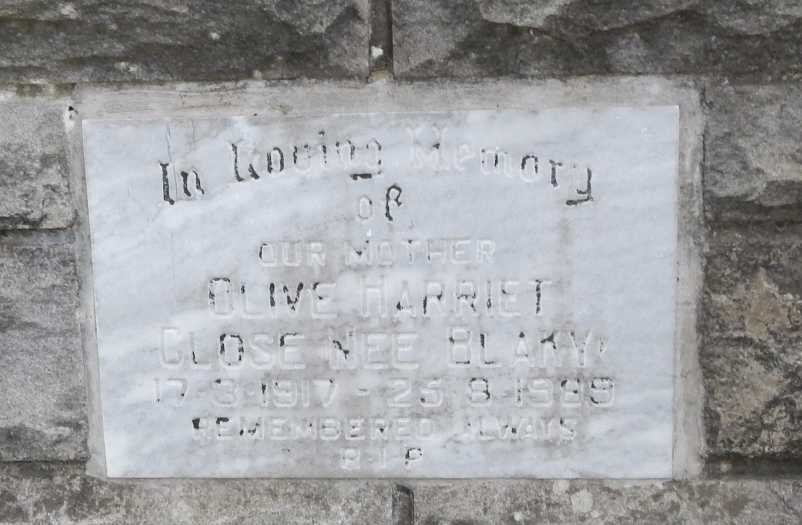 In Loving Memory
of
OUR MOTHER
OLIVE HARRIET
CLOSE NEE BLAKY
17-3-1917 - 25-8-1989
REMEMBERED ALWAYS
R.I.P